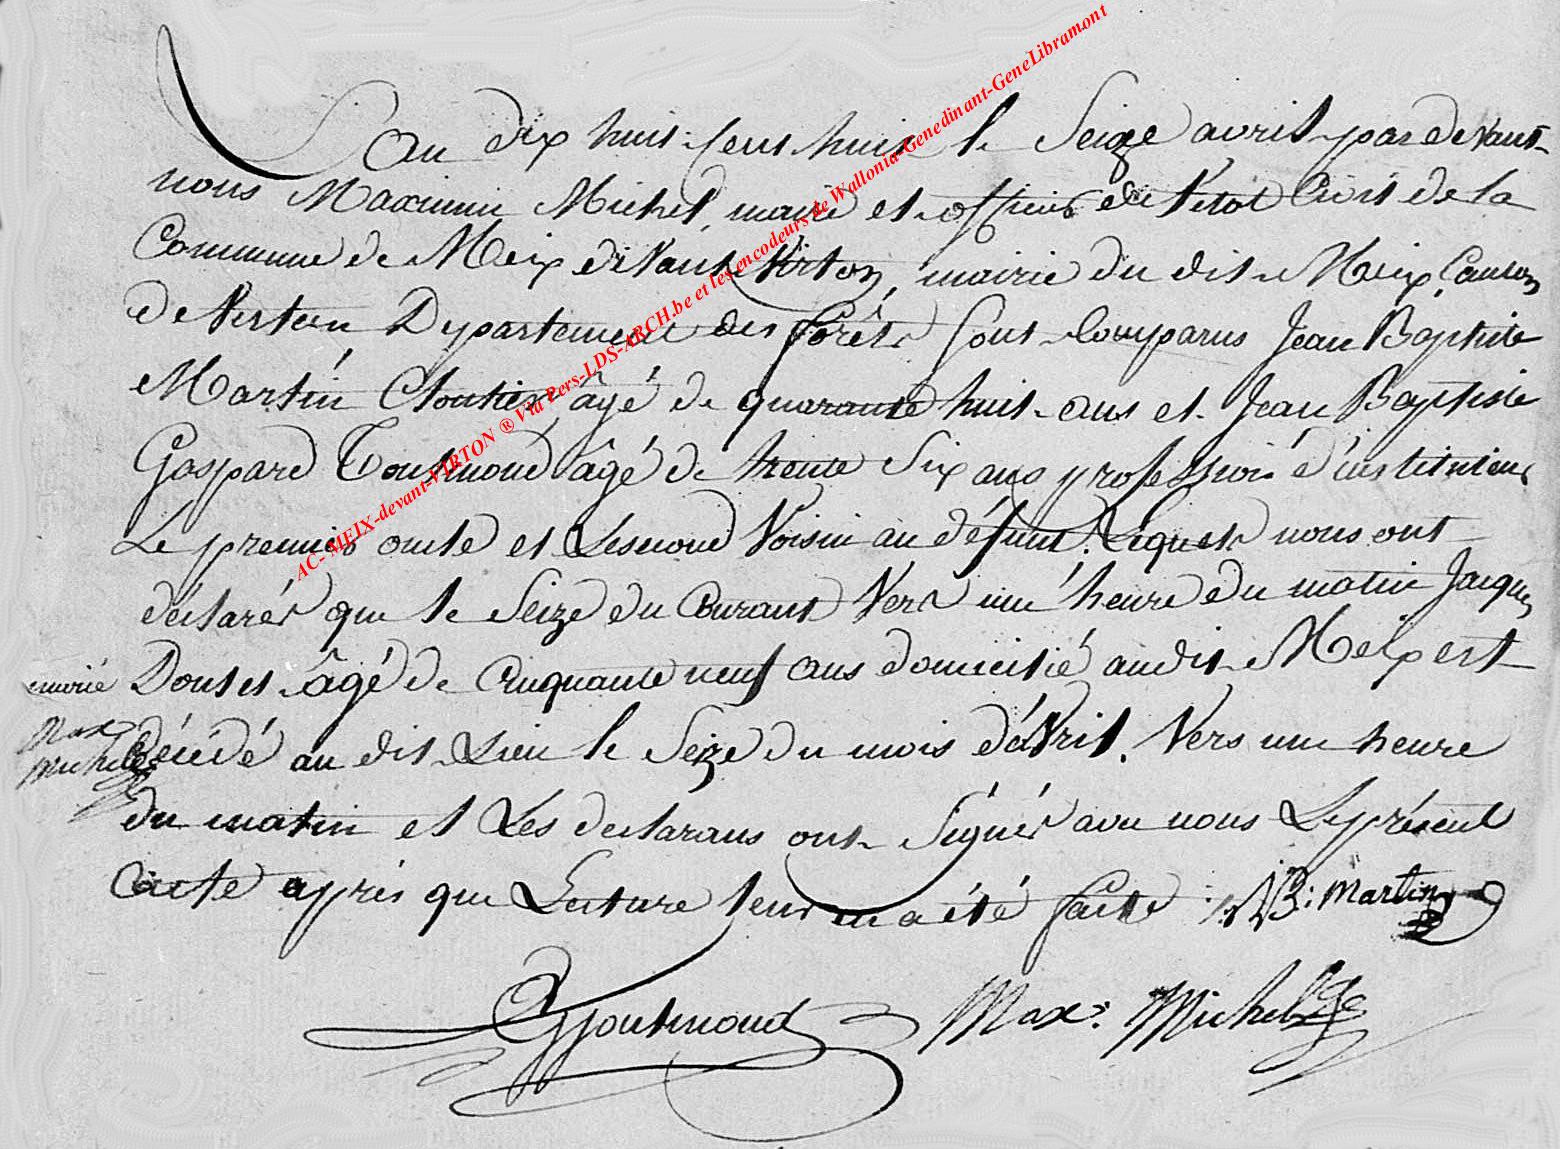 L'an dix huit cent huit le Seize avril par devant
nous Maximin Michel, maire et officier de l'état Civil de la
Commune de Meix devant Virton, mairie du dit Meix, Canton
de Virton Département des forêts sont Comparus Jean Baptiste
Martin Cloutier âgé de quarante huit ans et Jean Baptiste
Gaspard Toussaint âgé de trente Six ans profession d'instituteur
Le premier oncle et Lesecond Voisin au défunt. Lequels nous ont
déclarés que le Seize du Courant Vers une heure du matin Jacques
marié Douset âgé de Cinquante neuf ans domicilié audit Meix est
Max: Michel
décédé au dit Lieu le Seize du mois d'aVril. Vers une heure
du matin et Les declarans ont Signés avec nous Leprésent
acte après que Lecture leur en a été faite JB: Martin
Max: Michel
AC- MEIX-devant-VIRTON ® Via Pers-LDS-ARCH.be et les encodeurs de Wallonia-Genedinant-GeneLibramont